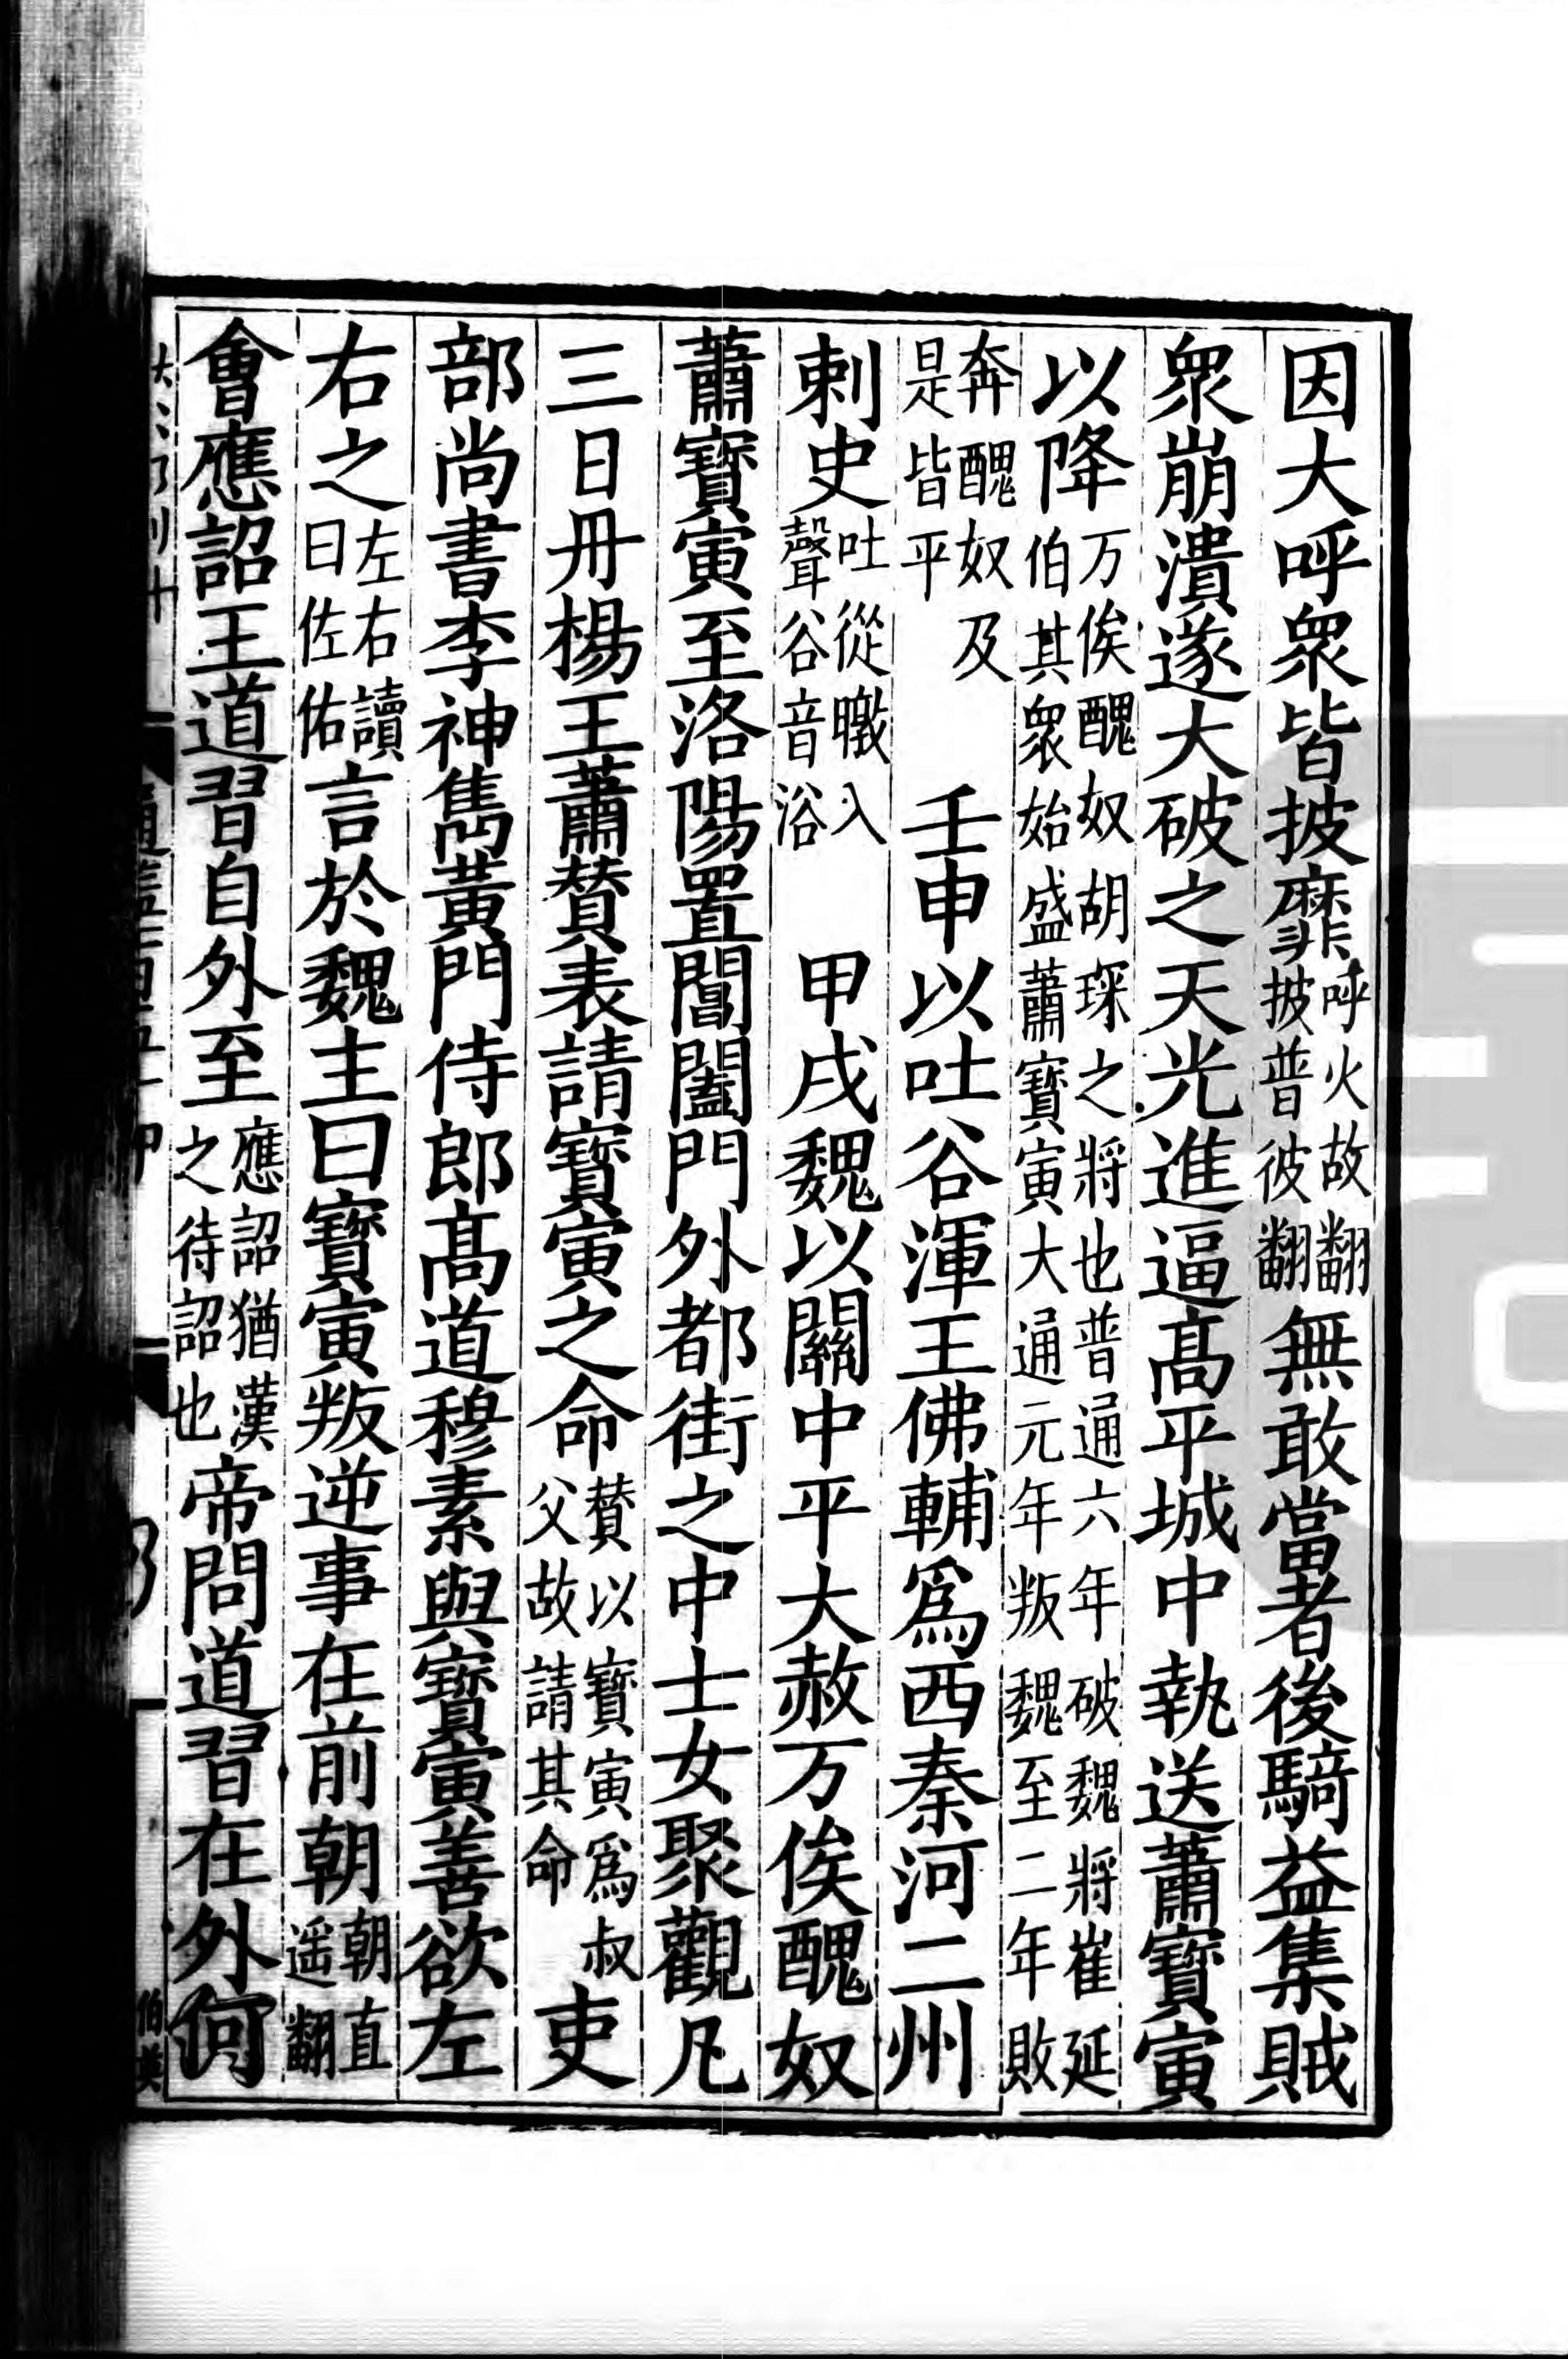 因大呼衆皆披靡呼火故翻披普彼翻無敢當者後騎益集賊
衆崩潰遂大破之天光進逼高平城中執送蕭寶寅
以降万俟醜奴胡琛之將也普通六年破魏將崔延伯其衆始盛蕭寶寅大通元年叛魏至二年敗
奔醜奴及是皆平　壬申以吐谷渾王佛輔爲西秦河二州
刺史吐從暾入聲谷音浴　甲戌魏以關中平大赦万俟醜奴
蕭寶寅至洛陽置閶闔門外都街之中士女聚觀凡
三日丹楊王蕭賛表請寶寅之命賛以寶寅爲叔父故請其命吏
部尚書李神雋黃門侍郎高道穆素與寶寅善欲左
右之左右讀曰佐佑言於魏主曰寶寅叛逆事在前朝朝直遥翻
會應詔王道習自外至應詔猶漢之待詔也帝問道習在外何